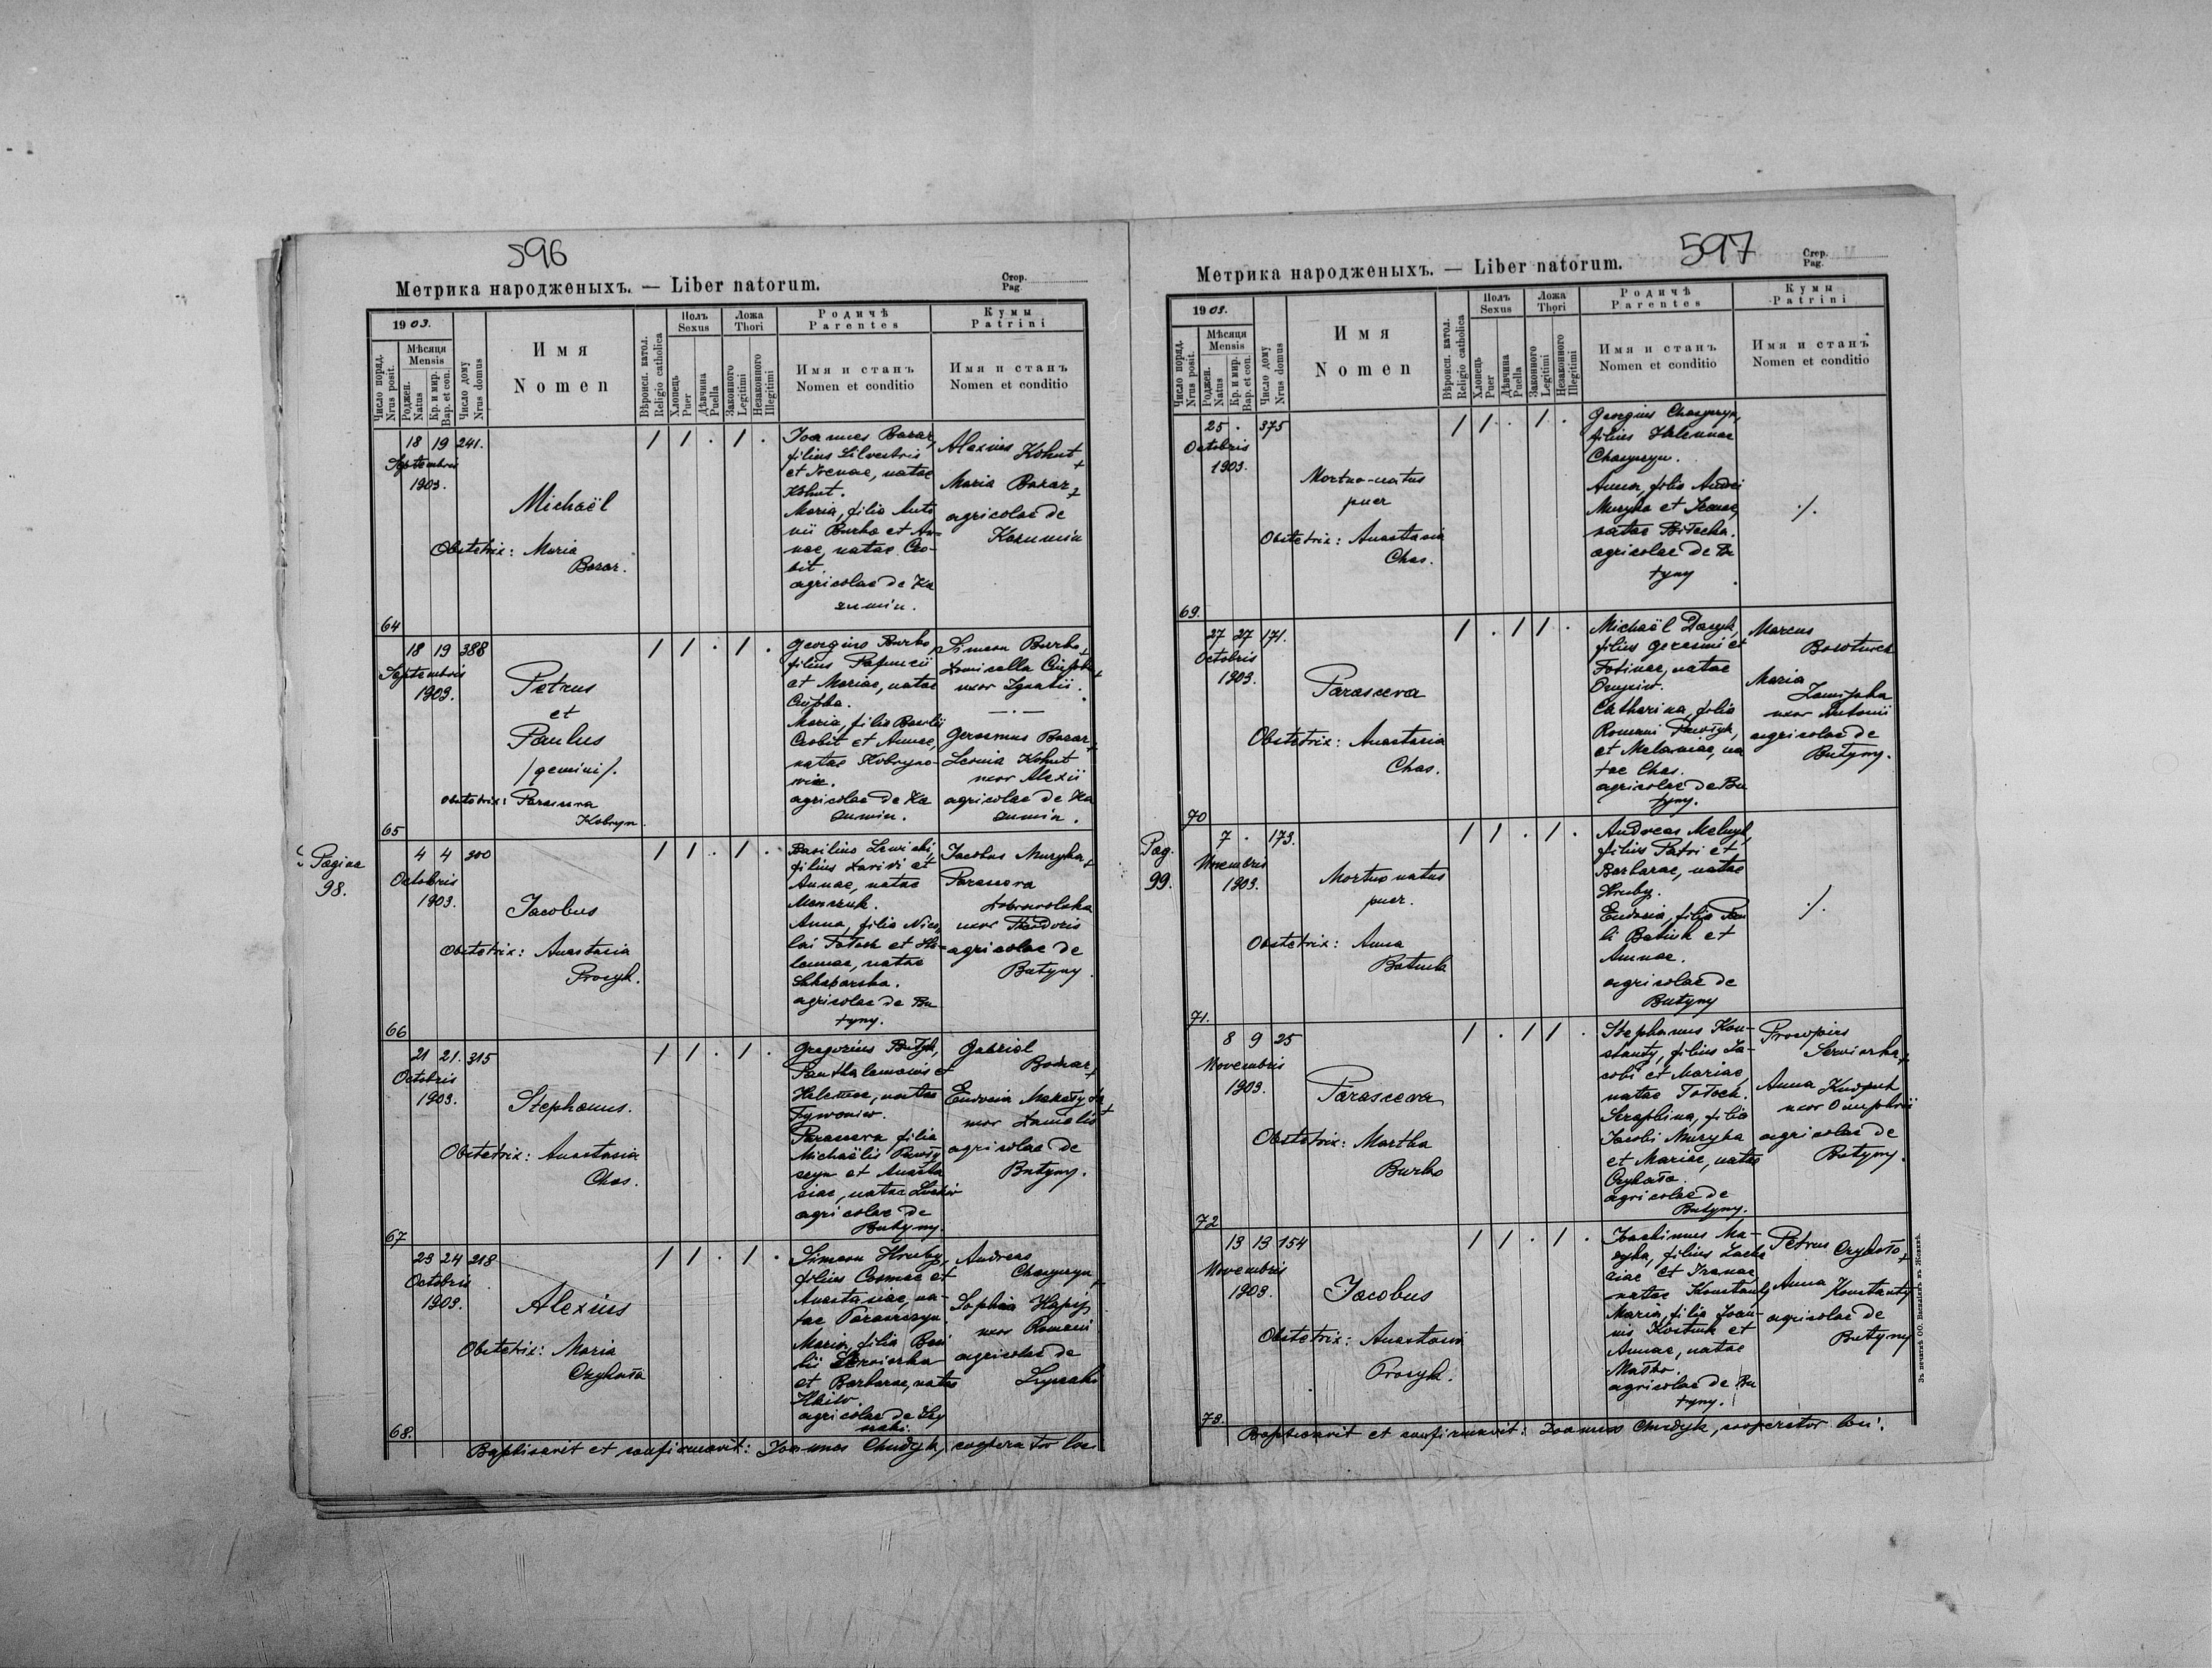 596
Метрика народженыхъ. — Liber natorum.
Стор.
Pag.
1903.
Число поряд.
Nrus posit.
Мѣсяця
Mensis
Роджен.
Natus
Кр. и мир.
Bap. et con.
Число дому
Nrus domus
Имя
Nomen
Вѣроисп. катол.
Religio catholica
Полъ
Sexus
Хлопець
Puer
Дѣвчина
Puella
Ложа
Thori
Законного
Legitimi
Незаконного
Illegitimi
Родичѣ
Parentes
Имя и станъ
Nomen et conditio
Кумы
Patrini
Имя и станъ
Nomen et conditio
64
18 19 241.
Septembris
1903.
Michaël
Obstetrix: Maria
Bazar.
1 1 . 1 .
Joannes Bazar,
filius Silvestris
et Irenae, natae
Kohut.
Maria, filia Anto
nii Burko et An-
nae, natae Cro-
bit.
agricolae de Ka
zumin.
Alexius Kohut +
Maria Bazar +
agricolae de
Kazumin
65
18 19 388
Septembris
1903.
Petrus
et
Paulus
/gemini/.
Obstetrix: Parasceva
Kobryn.
1 1 . 1 .
Georgius Burko,
filius Paphnucii
et Mariae, natae
Maria, filia Basilii
et Annae,
natae Kobryno-
wicz.
agricolae de Ka
zumin.
Simeon Burko +
Domicella
uxor Ignatii.
— . —
Gerasmus Bazar +
Leonia Kohut
uxor Alexii
agricolae de Ka
zumin.
Pagina
98.
66
4 4 300
Octobris
1903.
Jacobus
Obstetrix: Anastasia
Prosyk.
1 1 . 1 .
Basilius Lewicki,
filius Davidi et
Annae, natae
Anna, filia Nico
lai Tołoch et He-
lennae, natae
agricolae de Bu
tyny.
Jacobus Muzyka +
Parasceva
Dobrowolska
uxor Theodoris
agricolae de
Butyny.
67
21 21. 315
Octobris
1903.
Stephanus.
Obstetrix: Anastasia
Chas.
1 1 . 1 .
Gregorius
Panthalemonis et
Helenae, natae
Tywoniw.
Parasceva filia
Michaëlis
et Anasta
siae, natae
agricolae de
Butyny.
Gabriel
Bodnar +
Eudocia
uxor Danielis +
agricolae de
Butyny.
68.
23 24 218
Octobris
1903.
Alexius
Obstetrix: Maria
Czykała
1 1 . 1 .
Simeon Hruby,
filius Cosmae et
Anastasiae, na-
tae
Maria, filia Basi
lii Serwiarka
et Barbarae, natae
agricolae de Ly
Andreas
Sophia Hapij
uxor Romani
agricolae de
Baptisavit et confirmavit: Joannes Chudyk, cooperator loci
597
Метрика народженыхъ. — Liber natorum.
Стор.
Pag.
1903.
Число поряд.
Nrus posit.
Мѣсяця
Mensis
Роджен.
Natus
Кр. и мир.
Bap. et con.
Число дому
Nrus domus
Имя
Nomen
Вѣроисп. катол.
Religio catholica
Полъ
Sexus
Хлопець
Puer
Дѣвчина
Puella
Ложа
Thori
Законного
Legitimi
Незаконного
Illegitimi
Родичѣ
Parentes
Имя и станъ
Nomen et conditio
Кумы
Patrini
Имя и станъ
Nomen et conditio
69.
25 . 375
Octobris
1903.
Mortuo-natus
puer
Obstetrix: Anastasia
Chas.
1 1 . 1 .
Georgius
filius Helennae
Anna, filia Andrei
Muzyka et Irenae,
natae
agricolae de Bu
tyny
./.
70
27 27 171.
Octobris
1903.
Parasceva
Obstetrix: Anastasia
Chas.
1 . 1 1 .
Michaël
filius Gerasmi et
Fotinae, natae
Catharina, filia
Romani
et Melaniae, na
tae Chas.
agricolae de Bu
tyny.
Marcus
Maria
uxor Antonii
agricolae de
Butyny.
Pag.
99.
71.
7 . 173.
Novembris
1903.
Mortuo natus
puer.
Obstetrix: Anna
1 1 . 1 .
Andreas Melnyk,
filius Petri et
Barbarae, natae
Hruby.
Eudoxia, filia Pau
li et
Annae.
agricolae de
Butyny
./.
72
8 9 25
Novembris
1903.
Parasceva
Obstetrix: Martha
Burko
1 . 1 1 .
Stephanus Kon-
stanty, filius Ja-
cobi et Mariae,
natae Tołoch.
Seraphina, filia
Jacobi Muzyka
et Mariae, natae
Czykała.
agricolae de
Butyny.
Procopius
Serwiarka +
Anna
uxor Onuphrii
agricolae de
Butyny.
73.
13 13 154
Novembris
1903.
Jacobus
Obstetrix: Anastasia
Prosyk.
1 1 . 1 .
Joachimus Mu-
zyka, filius Zacha
riae et Irenae,
natae Konstanty
Maria, filia Joan-
nis Kostiuk et
Annae, natae
agricolae de Bu
tyny.
Petrus Czykało +
Anna Konstanty
agricolae de
Butyny
Baptisavit et confirmavit: Joannes Chudyk, cooperator loci.
Зъ печатнѣ ОО. Василіянъ въ Жовквѣ.